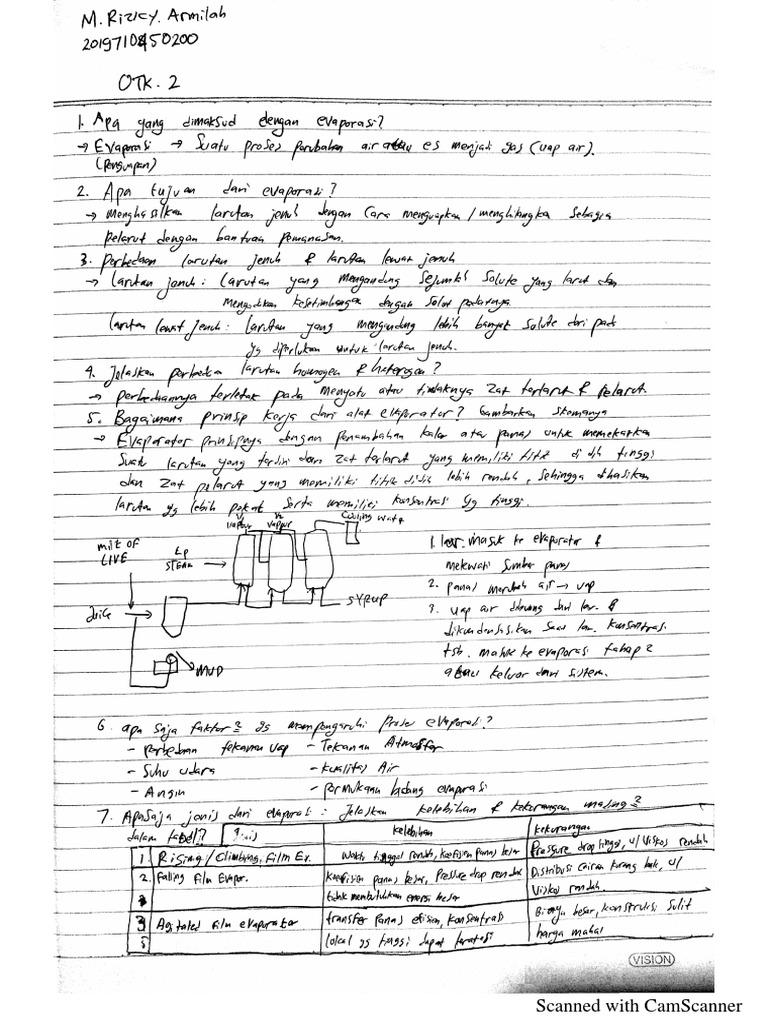 M. Rizky. Armilah
201971045 0200
OTK. 2
1. Apa yang dimaksud dengan evaporasi?
→ Evaporasi → Suatu proses perubahan air atau es menjadi gas (uap air).
(Penguapan)
2. Apa tujuan dari evaporasi?
→ menghasilkan larutan jenuh dengan cara menguapkan/menghilangka sebagia
pelarut dengan bantuan pemanasan.
3. Perbedaan larutan jenuh & larutan lewat jenuh
→ larutan jenuh : larutan yang mengandung sejumlah solute yang larut dan
mengadakan kesetimbangan dengan solut padatnya.
larutan lewat jenuh : larutan yang mengandung lebih banyak solute dari pada
yg diperlukan untuk larutan jenuh.
4. Jelaskan perbedaan larutan homogen & heterogen?
→ perbedaannya terletak pada menyatu atau tidaknya zat terlarut & pelarut.
5. Bagaimana prinsip kerja dari alat evaporator? Gambarkan skemanya
→ Evaporator prinsipnya dengan penambahan kalor atau panas untuk memekatkan
suatu larutan yang terdiri dari zat terlarut yang memiliki titik didih tinggi
dan zat pelarut yang memiliki titik didih lebih rendah, sehingga dihasilkan
larutan yg lebih pekat serta memiliki konsentrasi yg tinggi.
V1 vapour
V2 vapour
Cooling water
milk of LIVE
Lp STEAM
Juice
SYRUP
MUD
1. lar. masuk ke evaporator &
melewati sumber panas
2. panas merubah air → uap
3. uap air dibuang dari lar. &
dikondensisikan saat lar. konsentrasi
tsb. masuk ke evaporasi tahap 2
atau keluar dari sistem.
6. apa saja faktor2 yg mempengaruhi proses evaporasi?
- perbedaan tekanan uap - Tekanan Atmosfer
- Suhu udara - kualitas Air
- Angin - permukaan bidang evaporasi
7. Apa saja jenis dari evaporasi : Jelaskan kelebihan & kekurangan masing2
dalam tabel? Jenis kelebihan kekurangan
1. Rising/Climbing Film Ev. Waktu tinggal rendah, koefisien panas besar Pressure drop tinggi, u/ viskos rendah
2. Falling Film Evapor. koefisien panas besar, Pressure drop rendah Distribusi cairan kurang baik, u/
tidak membutuhkan energi besar Viskos rendah.
3 Agitated Film evaporator transfer panas efisien, konsentrasi Biaya besar, konstruksi sulit
lokal yg tinggi dapat teratasi harga mahal
VISION
Scanned with CamScanner